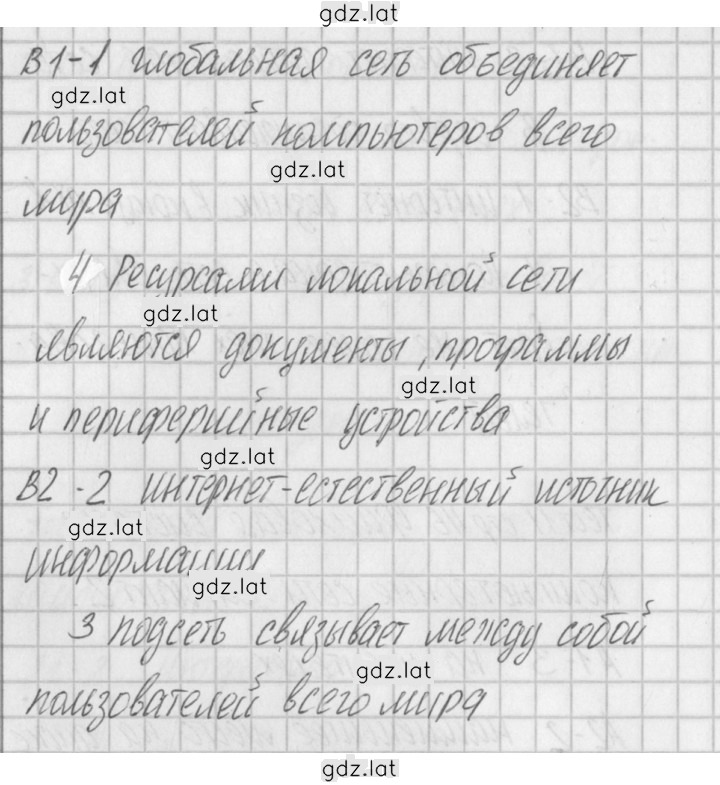 gdz.lat
В1-1 глобальная сеть объединяет
gdz.lat
пользователей компьютеров всего
gdz.lat
мира
4 Ресурсами локальной сети
gdz.lat
являются документы, программы
gdz.lat
и периферийные устройства
gdz.lat
В2-2 интернет-естественный источник
gdz.lat
информации
gdz.lat
3 подсеть связывает между собой
gdz.lat
пользователей всего мира
gdz.lat